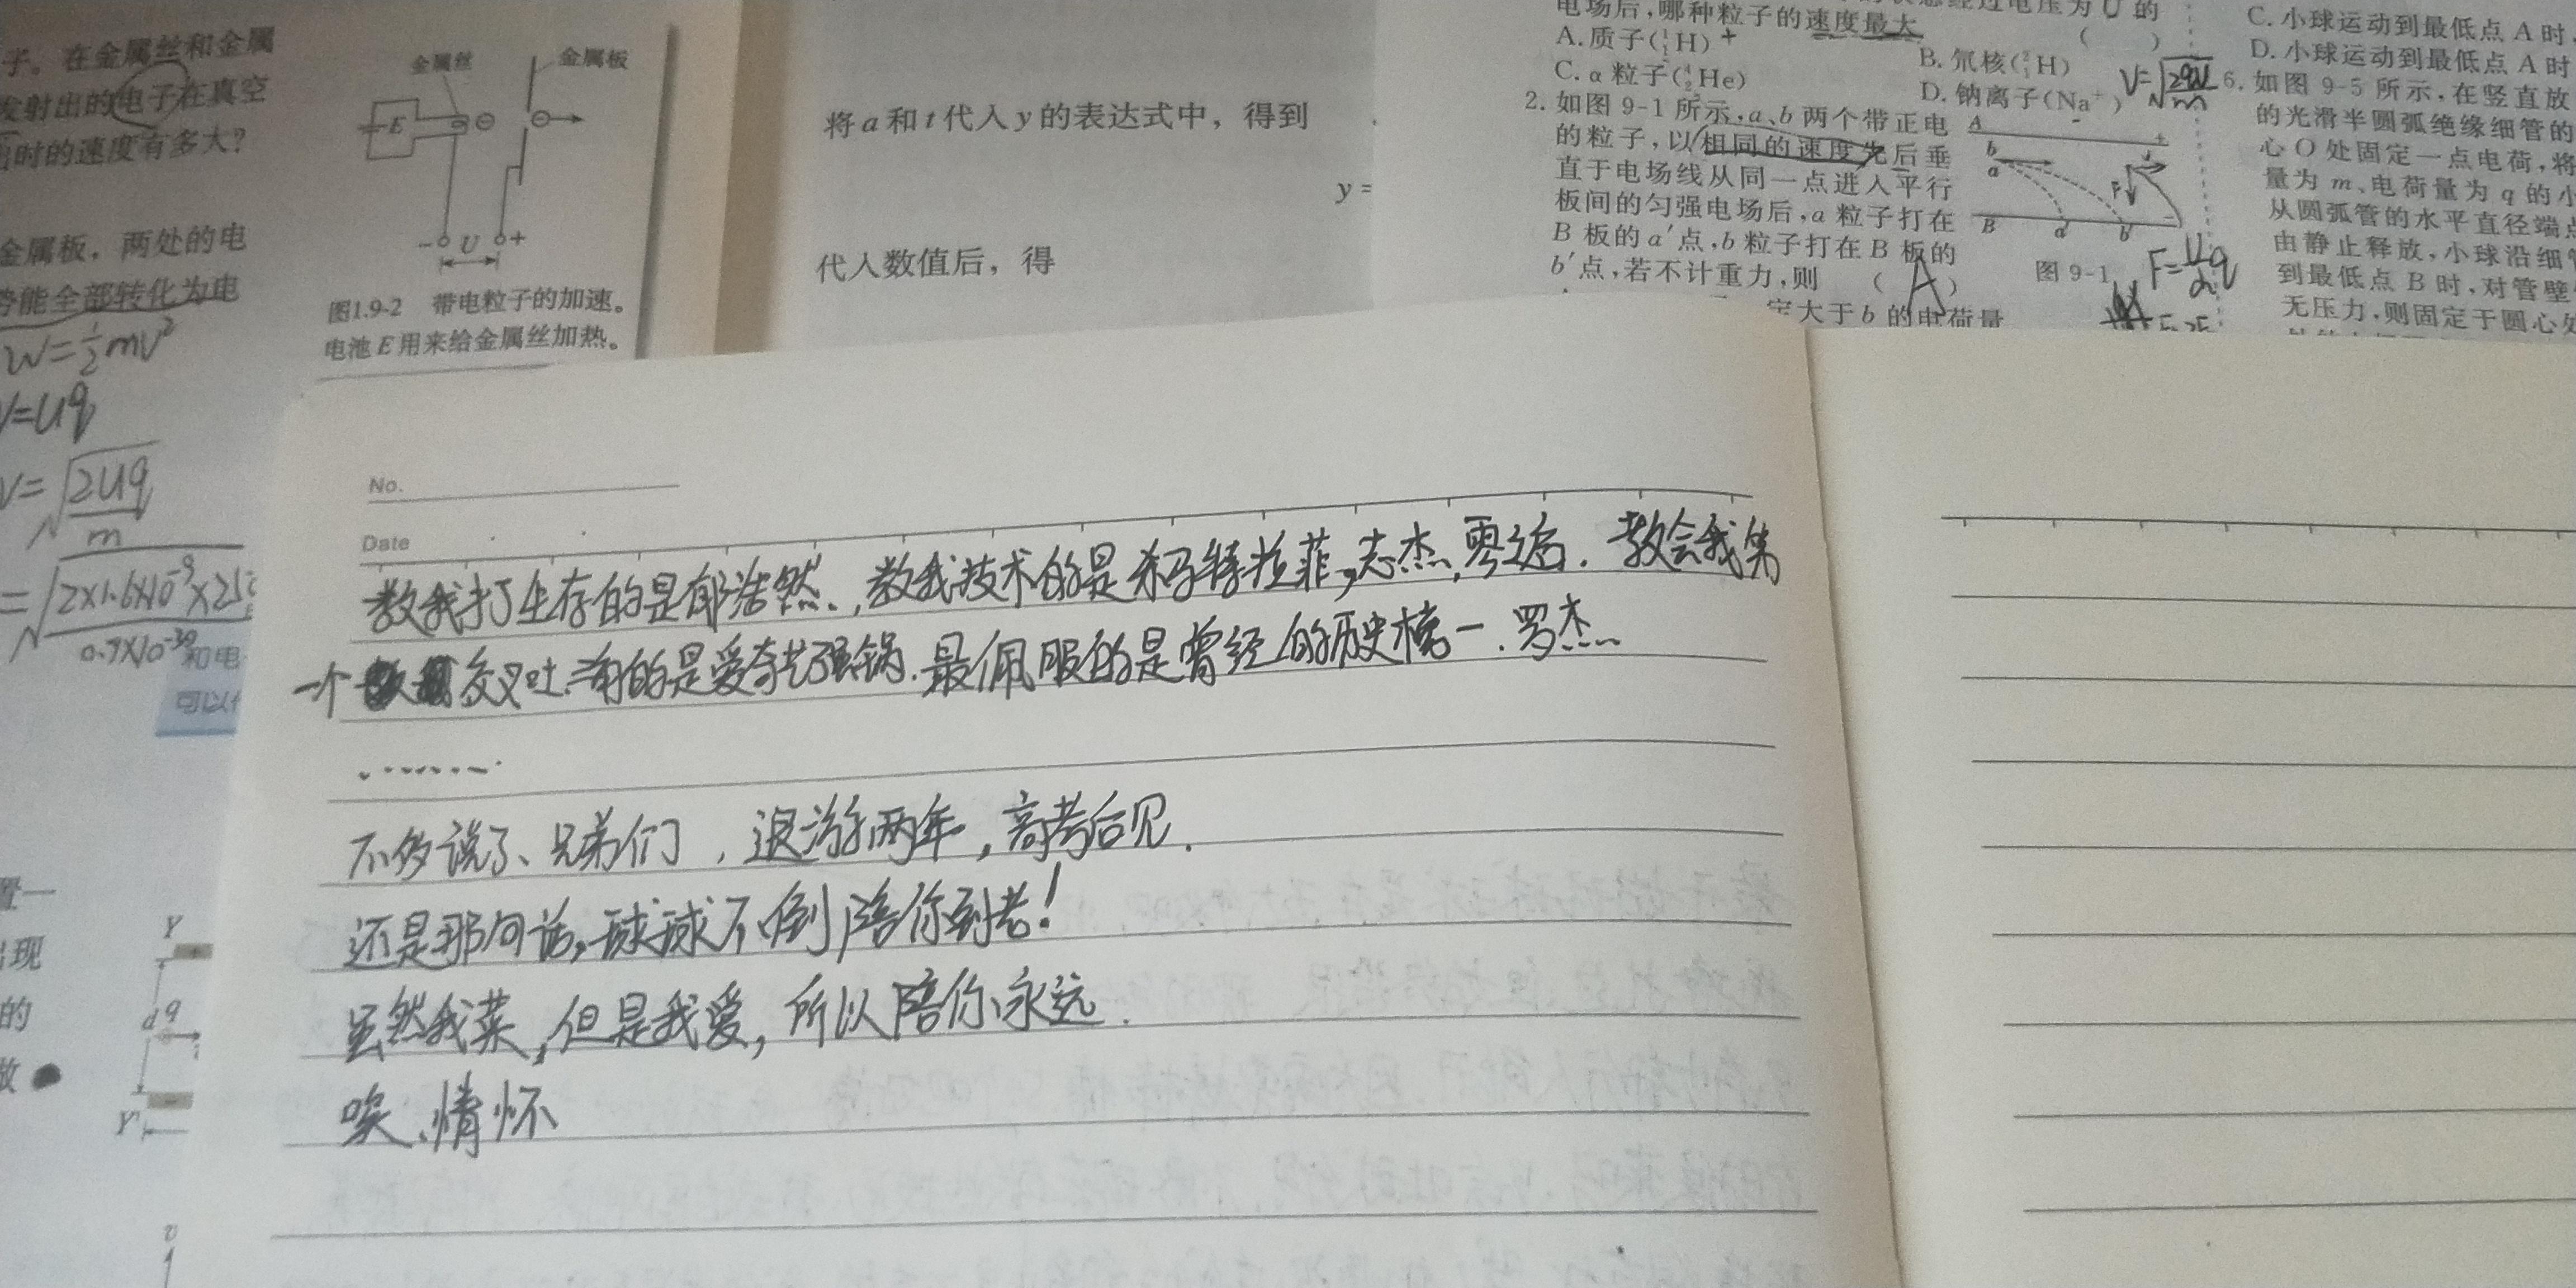 子。在金属丝和金属
发射出的电子在真空
出时的速度有多大？
金属板，两处的电
势能全部转化为电
W=½mv²
V=Uq
V=√(2Uq/m)
和电
可以
置一
出现
的
放
Y
d
q
Y'
v
金属丝
金属板
E
- U +
图1.9-2 带电粒子的加速。
电池E用来给金属丝加热。
将a和t代入y的表达式中，得到
y=
代入数值后，得
电场后,哪种粒子的速度最大
( )
A.质子(¹₁H) +
B.氘核(²₁H)
C.α粒子(⁴₂He)
D.钠离子(Na⁺)
V=√(2qU/m)
2.如图9-1所示,a、b两个带正电
的粒子,以相同的速度先后垂
直于电场线从同一点进入平行
板间的匀强电场后,a粒子打在
B板的a′点,b粒子打在B板的
b′点,若不计重力,则 ( A )
定大于b的电荷量
A
b
a
B a' b'
F
图9-1
F=Uq/d
C.小球运动到最低点A时,
D.小球运动到最低点A时
6.如图9-5所示,在竖直放
的光滑半圆弧绝缘细管的
心O处固定一点电荷,将
量为m、电荷量为q的小
从圆弧管的水平直径端点
由静止释放,小球沿细管
到最低点B时,对管壁
无压力,则固定于圆心处
No.
Date
教我打生存的是郁浩然.,教我技术的是杀马特拉菲,志杰,零边.教会我第
一个交叉吐.淘的是爱奇艺强锅.最佩服的是曾经的历史榜一.罗杰...
........
不多说了、兄弟们,退游两年,高考后见.
还是那句话,球球不倒陪你到老!
虽然我菜,但是我爱,所以陪你永远.
唉、情怀